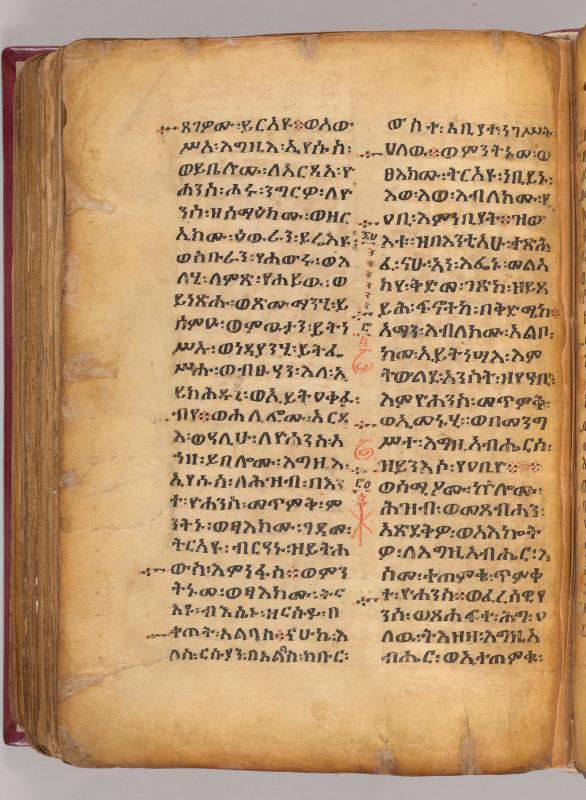 ጸገዎሙ፡ይርአዩ፨ወአው
ሥአ፡እግዚእ፡ኢየሱስ፡
ወይቤሎሙ፡ለአርዳእ፡ዮ
ሐንስ፡ሑሩ፡ንግርዎ፡ለዮ
ንስ፡ዘሰማዕክሙ፡ወዘር
ኢክሙ፡ዕውራን፡ይሬእዩ፡
ወስቡራን፡የሐውሩ፡ወእ
ለሂ፡ለምጽ፡የሐይዉ፡ወ
ይነጽሑ፡ወጽሙማንሂ፡ይ
ሰምዑ፡ወምውታን፡ይትነ
ሥኡ፡ወነዳያንሂ፡ይትፌ
ሥሑ፡ወብፁዓን፡እለ፡ኢ
ይክሕዱኒ፡ወኢይትዐቀፉ፡
ብየ፨ወሐሊፎሙ፡አርዳ
እ፡ወሃሊሁ፡ለዮሐንስ፡አ
ኀዘ፡ይብሎሙ፡እግዚእ፡
ኢየሱስ፡ለሕዝብ፡በእን
ተ፡ዮሐንስ፡መጥምቅ፡ም
ንትኑ፡ወፃእክሙ፡ገዳመ፡
ትርአዩ፡ብርዓኑ፡ዘይትሐ
ወስ፡እምነፋስ፨ወምን
ትኑመ፡ወፃእክሙ፡ትር
አዩ፡ብእሴኑ፡ዘርሱይ፡በ
ቀጠት፡አልባስ፨ናሁኬ፡እ
ለስ፡ርሱያን፡በአልባስ፡ክቡር፡
ውስተ፡አቢያተ፡ነገሥት፡
ሀለዉ፨ወምንትኑመ፡ወ
ፀእክሙ፡ትርአዩ፡ነቢይኑ፡
እወ፡እወ፡እብለክሙ፡የ
ዐቢ፡እምነቢያት፨ዝው
እቱ፡ዝበእንቲአሁ፡ተጽሕ
ፈ፡ናሁ፡አነ፡እፌኑ፡መልአ
ክየ፡ቅድመ፡ገጽከ፡ዘይጸ
ይሕ፡ፍኖተከ፡በቅድሜከ፨
አማን፡እብለክሙ፡አልቦ፡
ከመ፡አይትነሣእ፡እም
ትውልደ፡አንስት፡ዘየዓቢ፡
እምዮሐንስ፡መጥምቅ፡
ወኢመኑሂ፡ወበመንግ
ሥተ፡እግዚአብሔርሰ፡
ዘይንእስ፡የዐብዮ፨
ወሰሚዖሙ፡ኵሎሙ፡
ሕዝብ፡ወመጸብሓን፡
አጽደቅዎ፡ወአእኰት
ዎ፡ለእግዚአብሔር፡እ
ስመ፡ተጠምቁ፡ጥምቀ
ተ፡ዮሐንስ፨ወፈሪሳዊያ
ንሰ፡ወጸሐፍተ፡ሕግ፡ዐ
ለዉ፡ትእዛዘ፡እግዚአ
ብሔር፡ወኢተጠምቁ፡